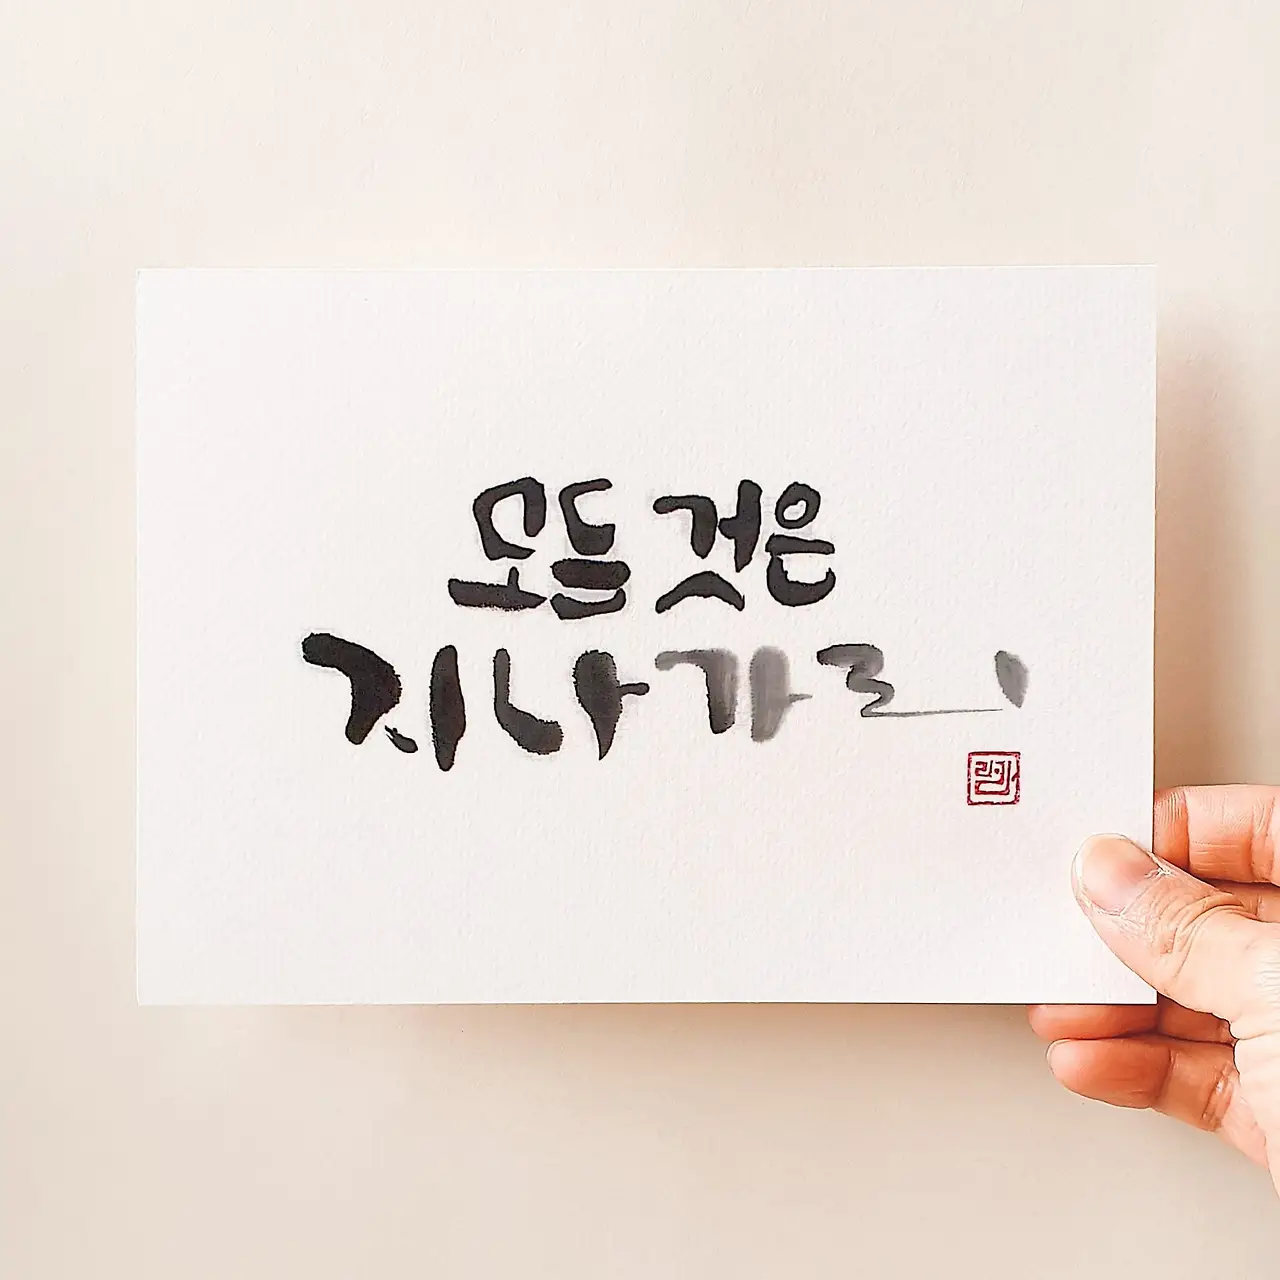 모든 것은
지나가리